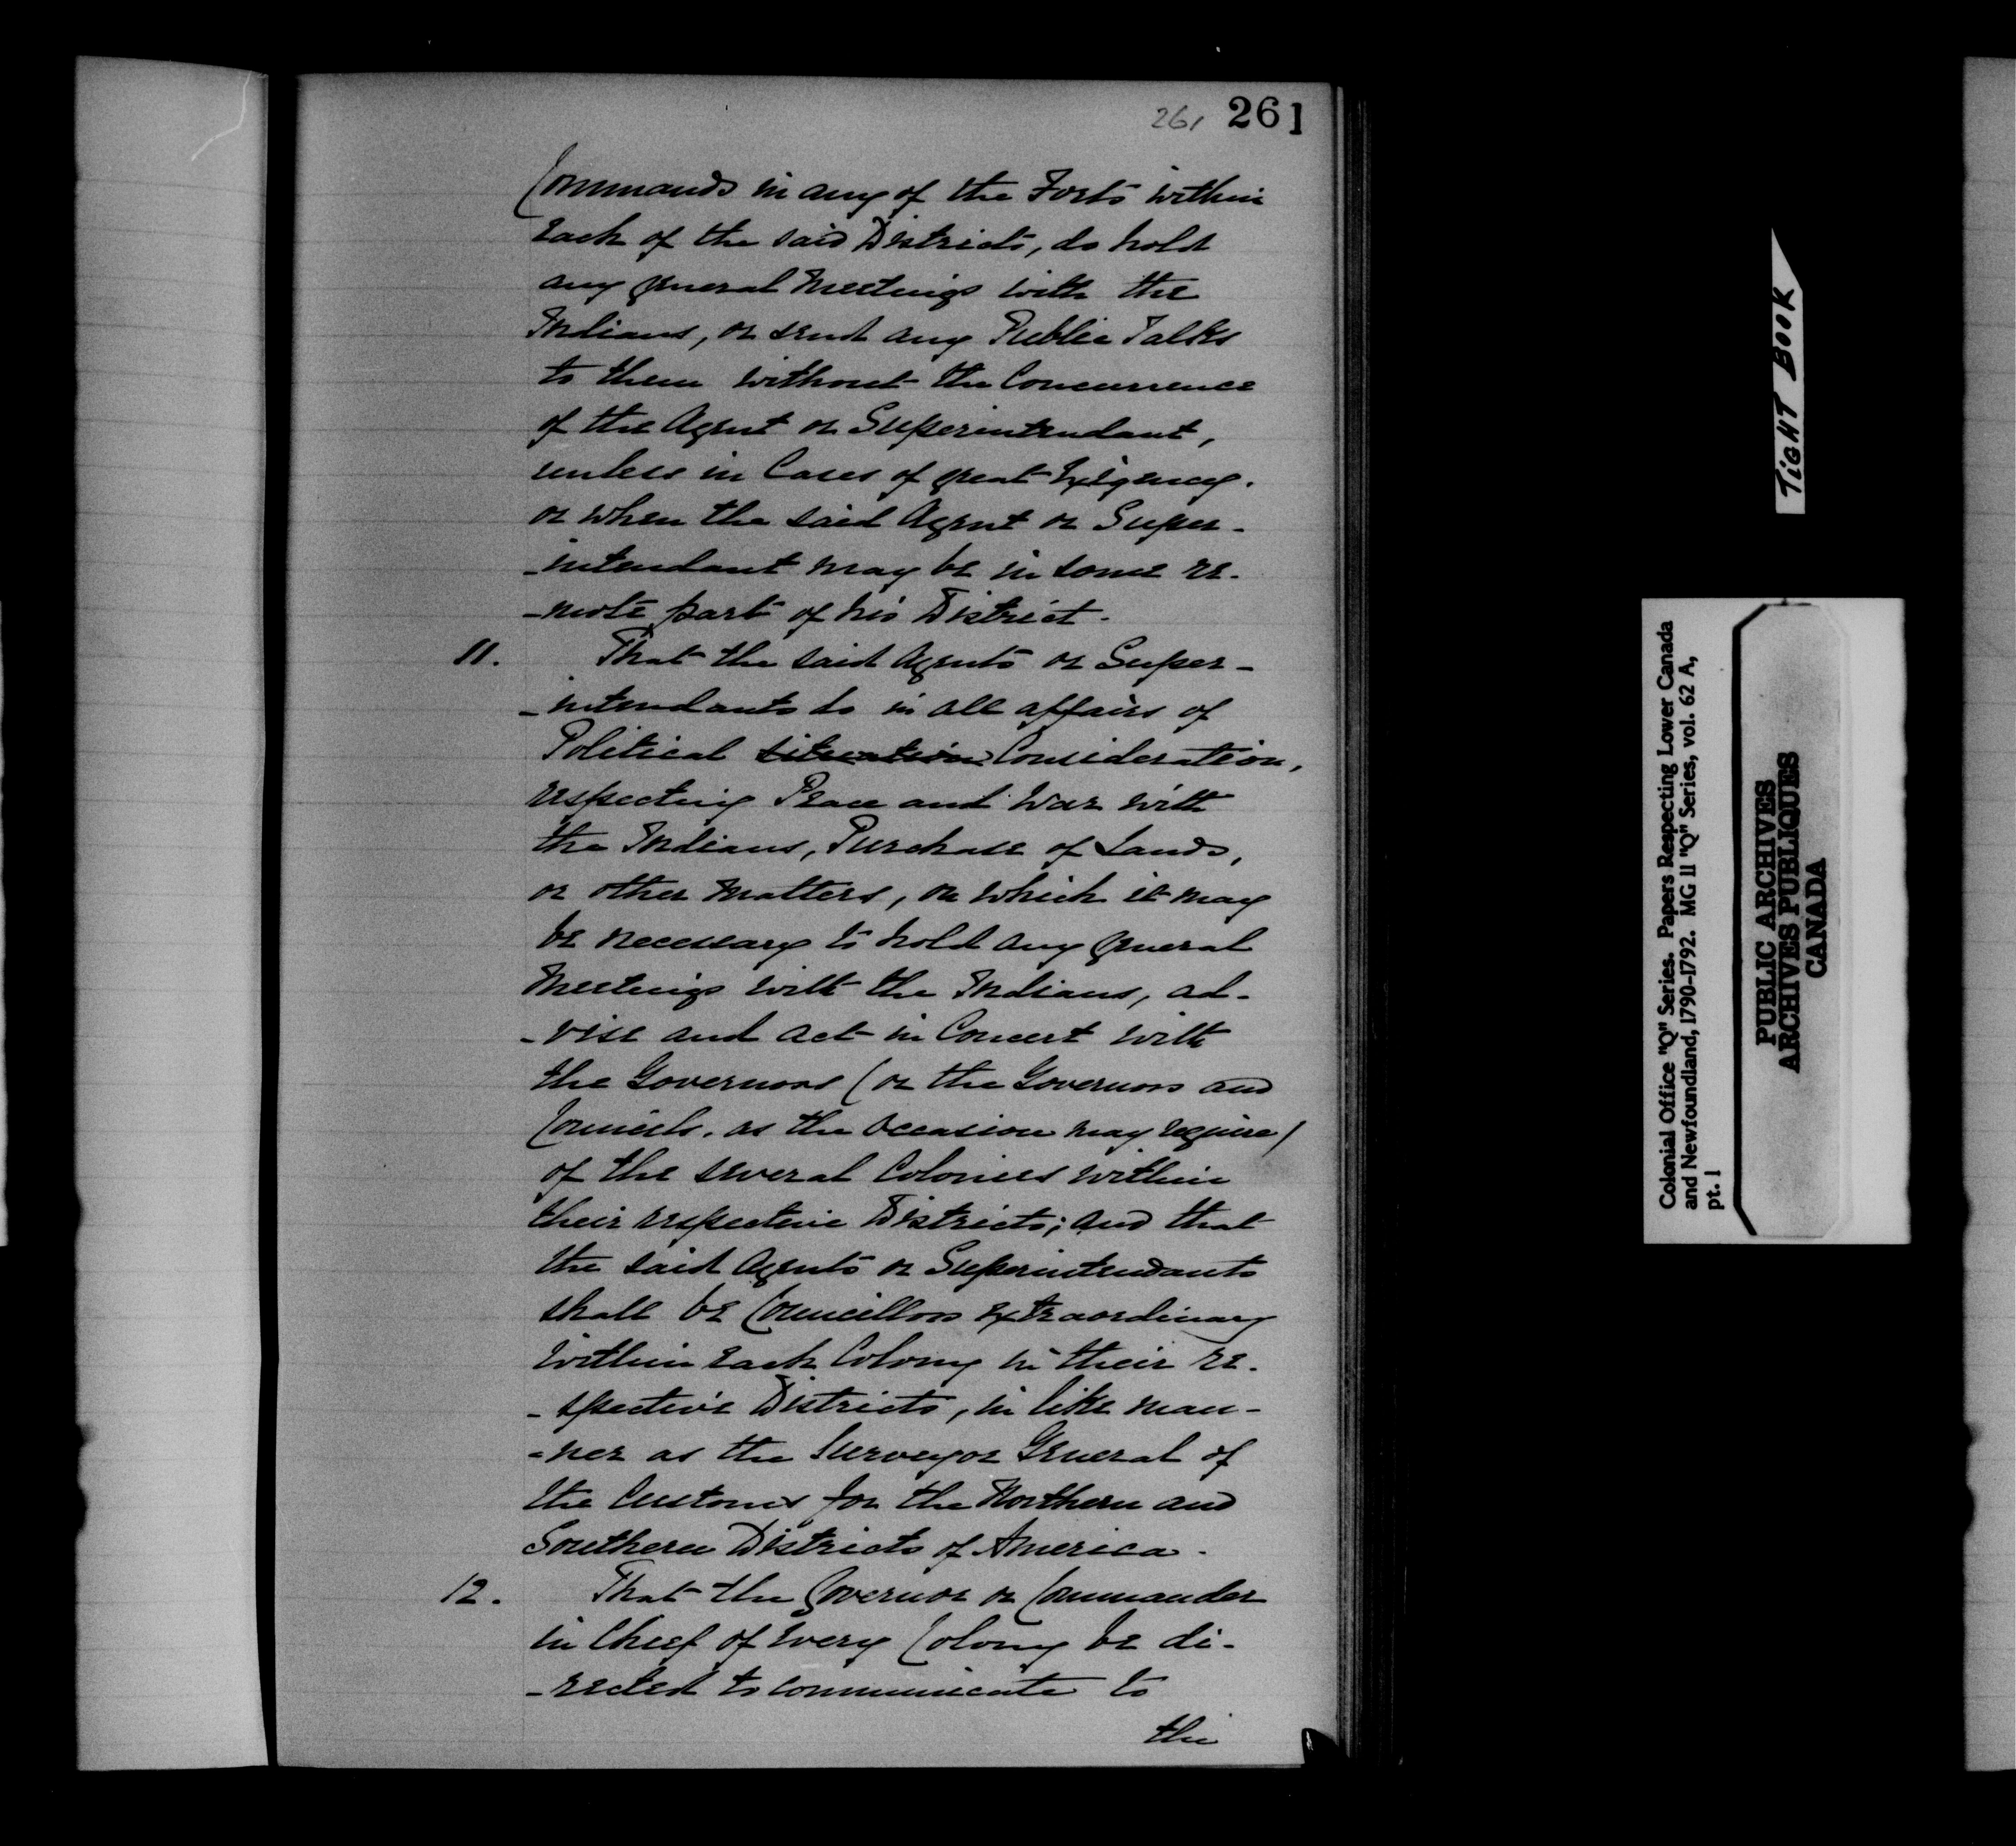 261 261
Commands in any of the Forts within
each of the said Districts, do hold
any general Meetings with the
Indians, or send any Public Talks
to them without the Concurrence
of the Agent or Superintendant,
unless in Cases of great Exigency.
or when the said Agent or Super-
-intendant may be in some re-
-mote part of his District.
11. That the said Agents or Super-
-intendants do in all affairs of
Political situation Consideration,
respecting Peace and War with
the Indians, Purchase of Lands,
or other Matters, on which it may
be necessary to hold any general
Meetings with the Indians, ad-
-vise and act in Concert with
the Governors (or the Governors and
Councils, as the Occasion may require)
of the several Colonies within
their respective Districts; and that
the said Agents or Superintendants
shall be Councillors extraordinary
within each Colony in their re-
-spective Districts, in like man-
-ner as the Surveyor General of
the Customs for the Northern and
Southern Districts of America.
12. That the Governor or Commander
in Chief of every Colony be di-
-rected to communicate to
the
TIGHT BOOK
Colonial Office "Q" Series. Papers Respecting Lower Canada
and Newfoundland, 1790-1792. MG 11 "Q" Series, vol. 62 A,
pt. 1
PUBLIC ARCHIVES
ARCHIVES PUBLIQUES
CANADA